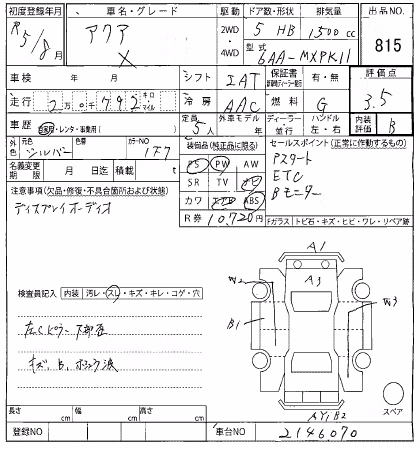 初度登録年月 車名・グレード 駆動 ドア数・形状 排気量 出品NO.
R5/8月 アクア X 2WD・4WD 5 HB 1500cc 815
型式 6AA-MXPK11
車検 年 月 シフト IAT 保証書 有・無 評価点
走行 2万0千792キロ マイル 冷房 AAC 燃料 G 3.5
車歴 自家用・レンタ・事業用( ) 定員 5人 外車モデル年 ディーラー・並行 ハンドル 左・右 内装評価 B
外色 元色 シルバー 色替 カラーNO 1F7 装備品(純正品に限る) セールスポイント(正常に作動するもの)
名義変更期限 月 日迄 積載 t PS PW AW Pスタート
SR TV ナビ ETC
注意事項(欠品・修復・不具合箇所および状態) カワ エアB ABS Bモニター
ディスプレイオーディオ R券 10,720円
Fガラス トビ石・キズ・ヒビ・ワレ・リペア跡
検査員記入 内装 汚レ・スレ・キズ・キレ・コゲ・穴
左Cピラー下部歪
キズ、B、ボコツ波
A1
A3
W2
W3
B1
AY1B2
スペア
長さ cm 幅 cm 高さ cm
登録NO 車台NO 2146070